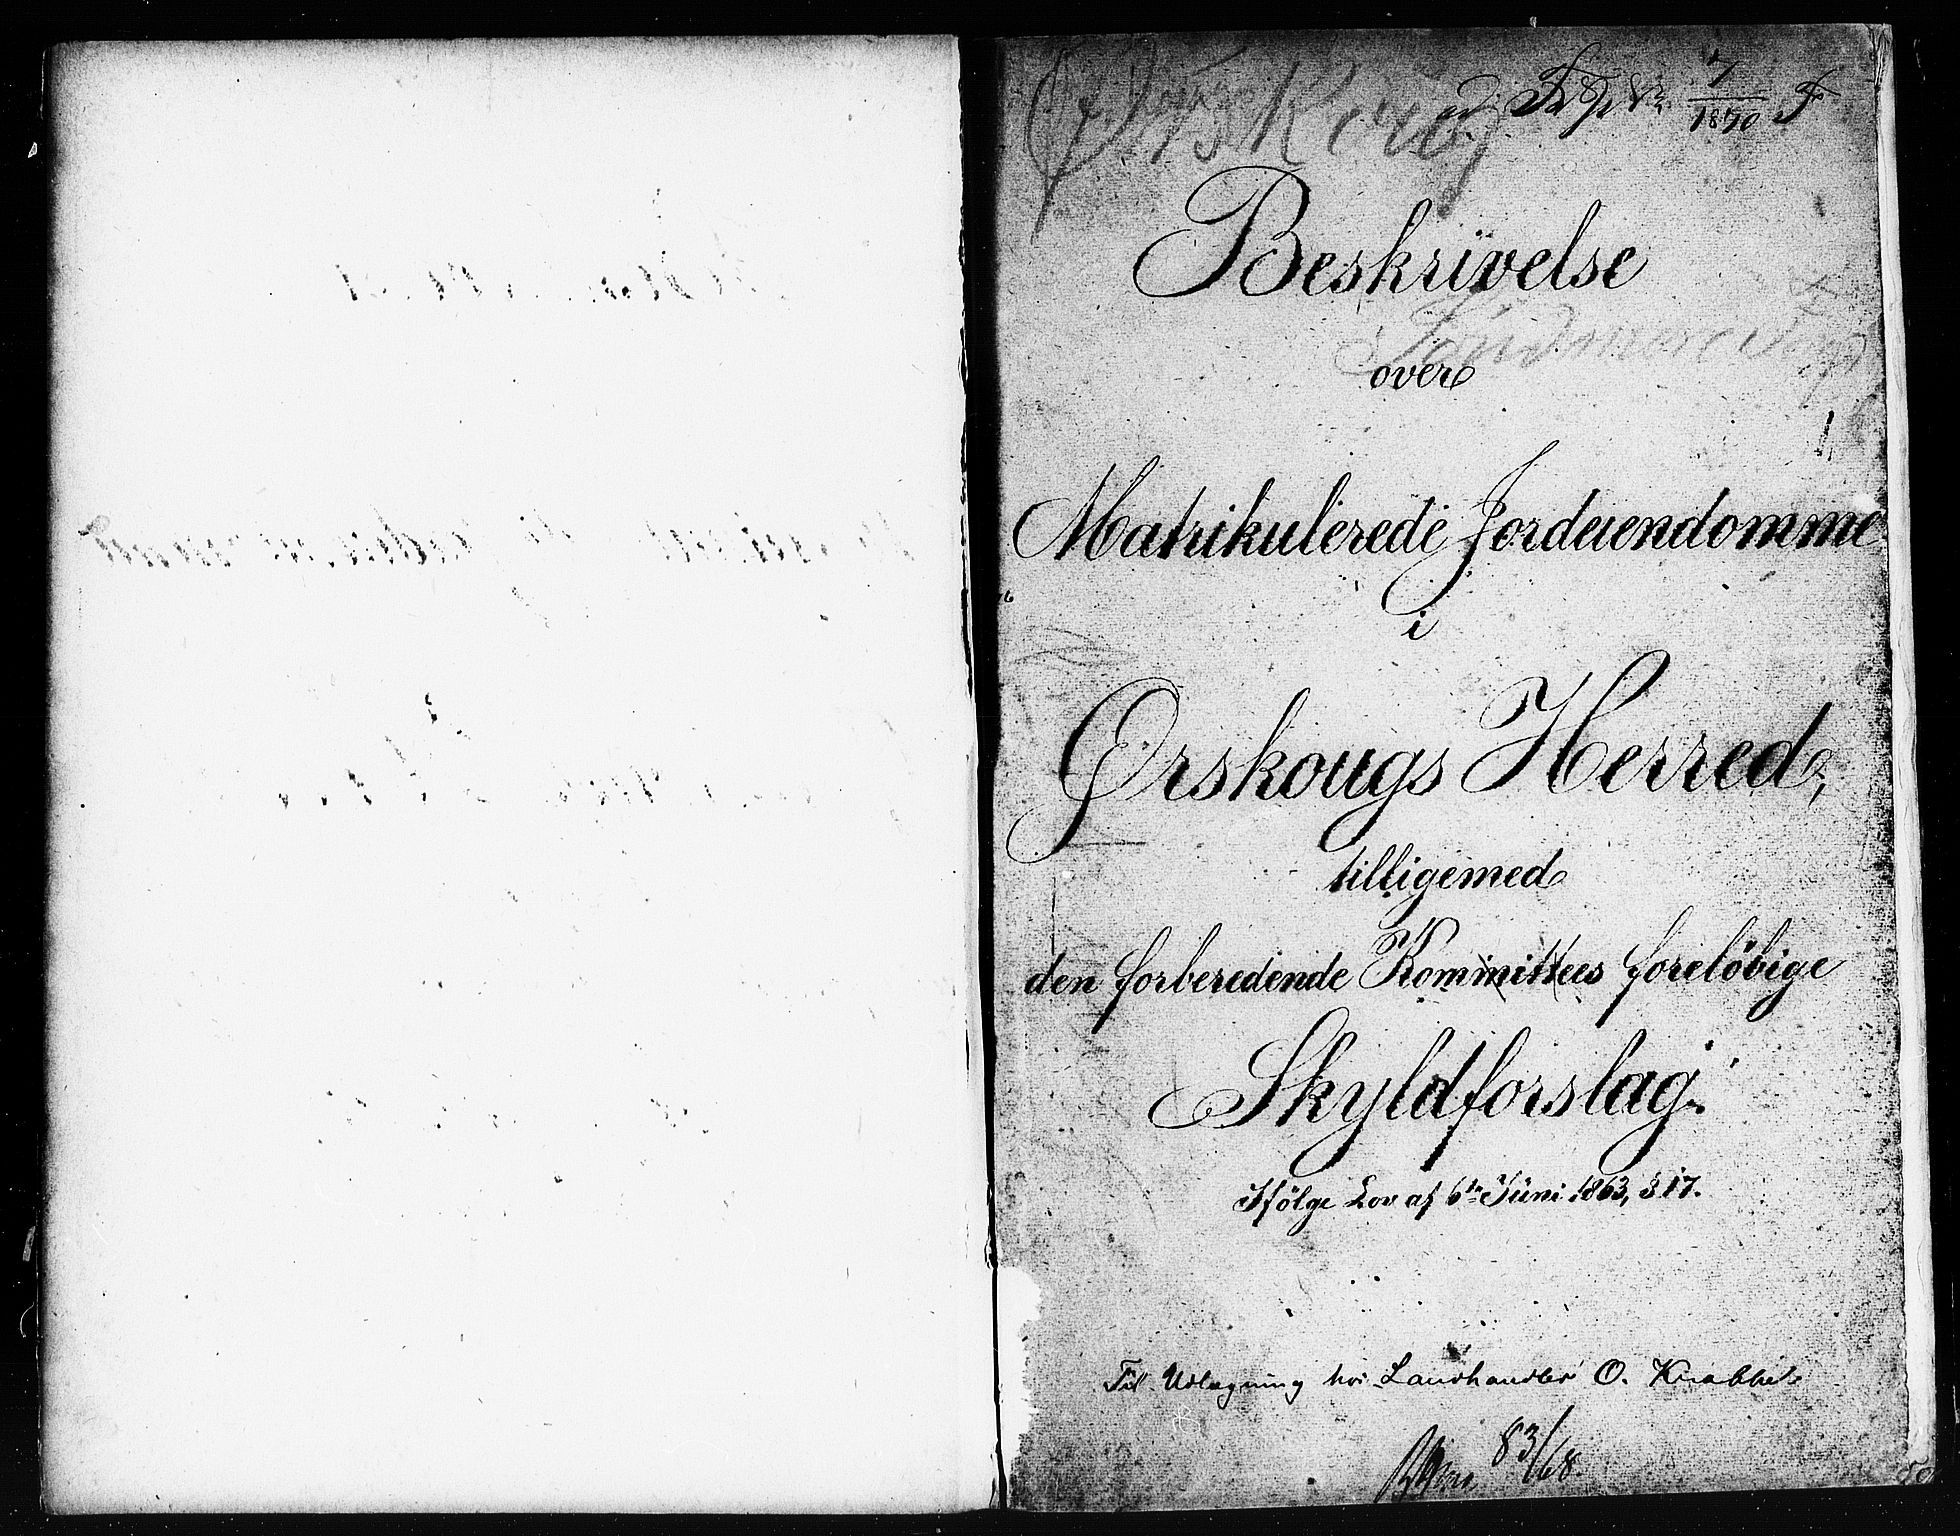 Ørskoug
7
1870
Beskrivelse
Søndmøre
over
Matrikulerede Jordeiendomme
i
Ørskougs Herred,
tilligemed
den forberedende Kommittees foreløbige
Skyldforslag.
Ifølge Lov af 6te Juni 1863, § 17.
Til Udlægning hos Landhandler O. Knabbe
83/68.